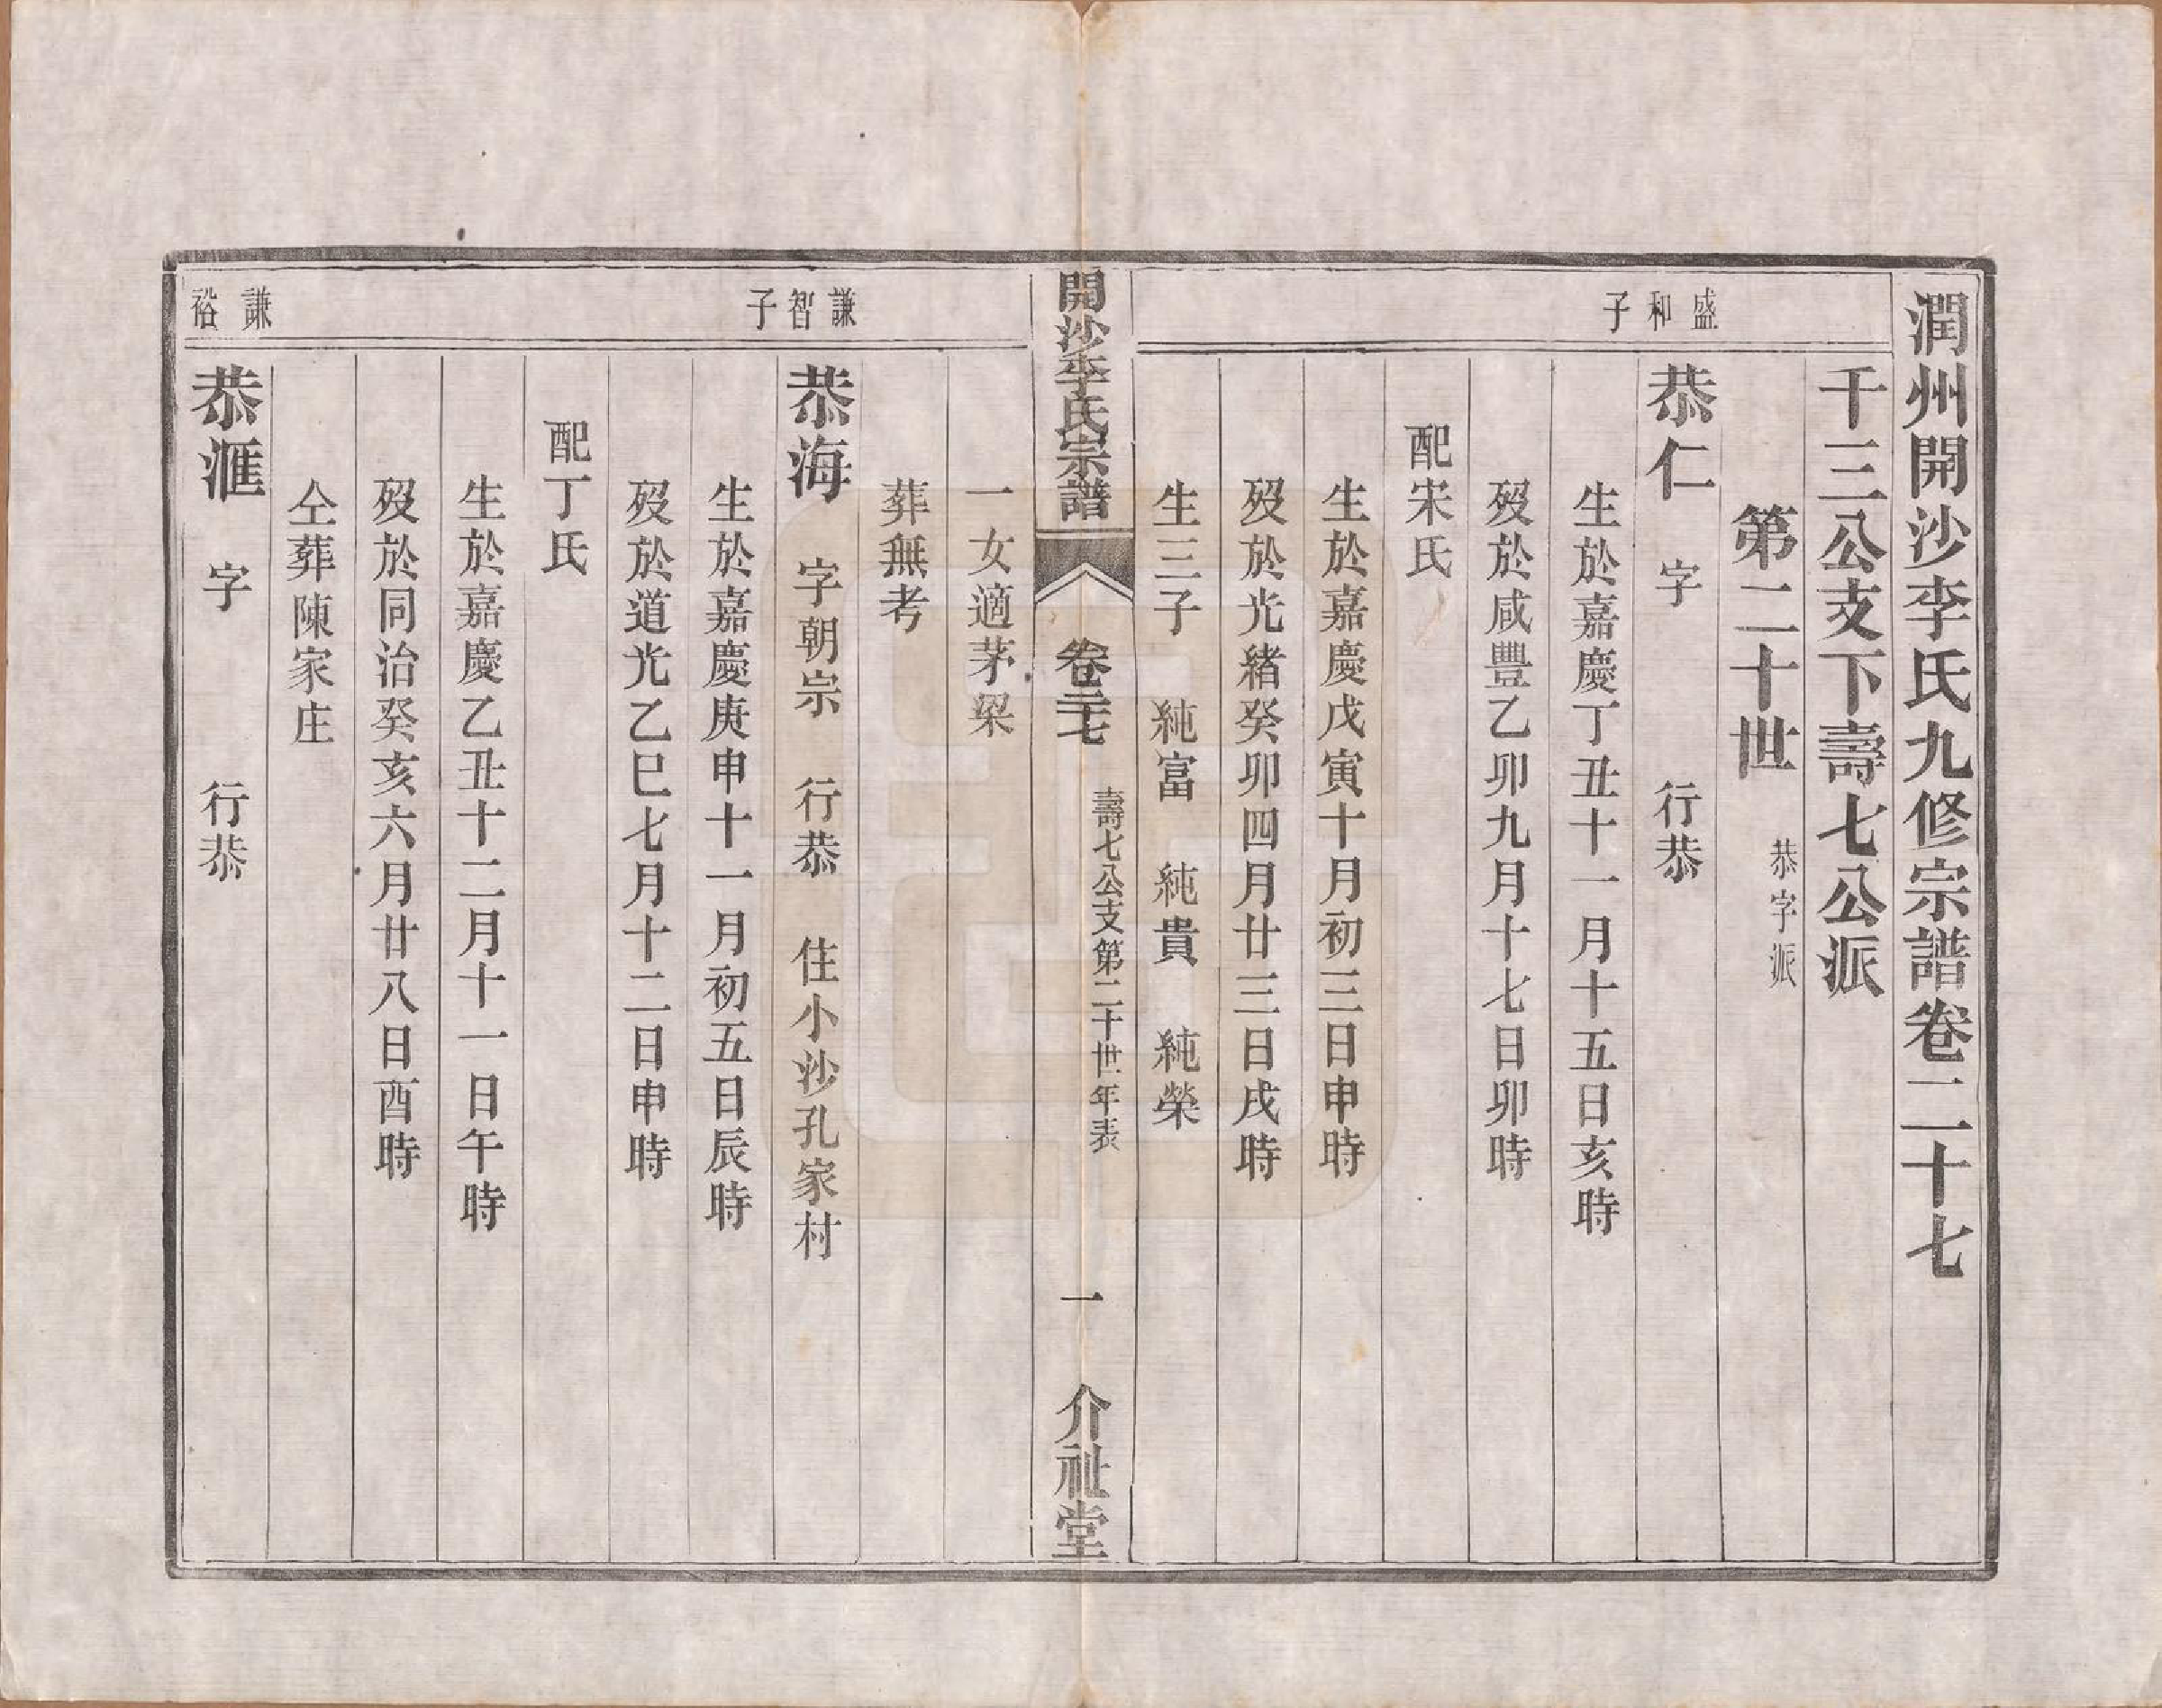 潤州開沙李氏九修宗譜卷二十七
千三公支下壽七公派
第二十世 恭字派
盛和子
恭仁 字 行恭
生於嘉慶丁丑十一月十五日亥時
歿於咸豐乙卯九月十七日卯時
配宋氏
生於嘉慶戊寅十月初三日申時
歿於光緒癸卯四月廿三日戌時
生三子 純富 純貴 純榮
開沙李氏宗譜 卷二十七 壽七公支第二十世年表 一 介祉堂
一女適茅梁
葬無考
謙智子
恭海 字朝宗 行恭 住小沙孔家村
生於嘉慶庚申十一月初五日辰時
歿於道光乙巳七月十二日申時
配丁氏
生於嘉慶乙丑十二月十一日午時
歿於同治癸亥六月廿八日酉時
仝葬陳家庄
謙裕
恭滙 字 行恭